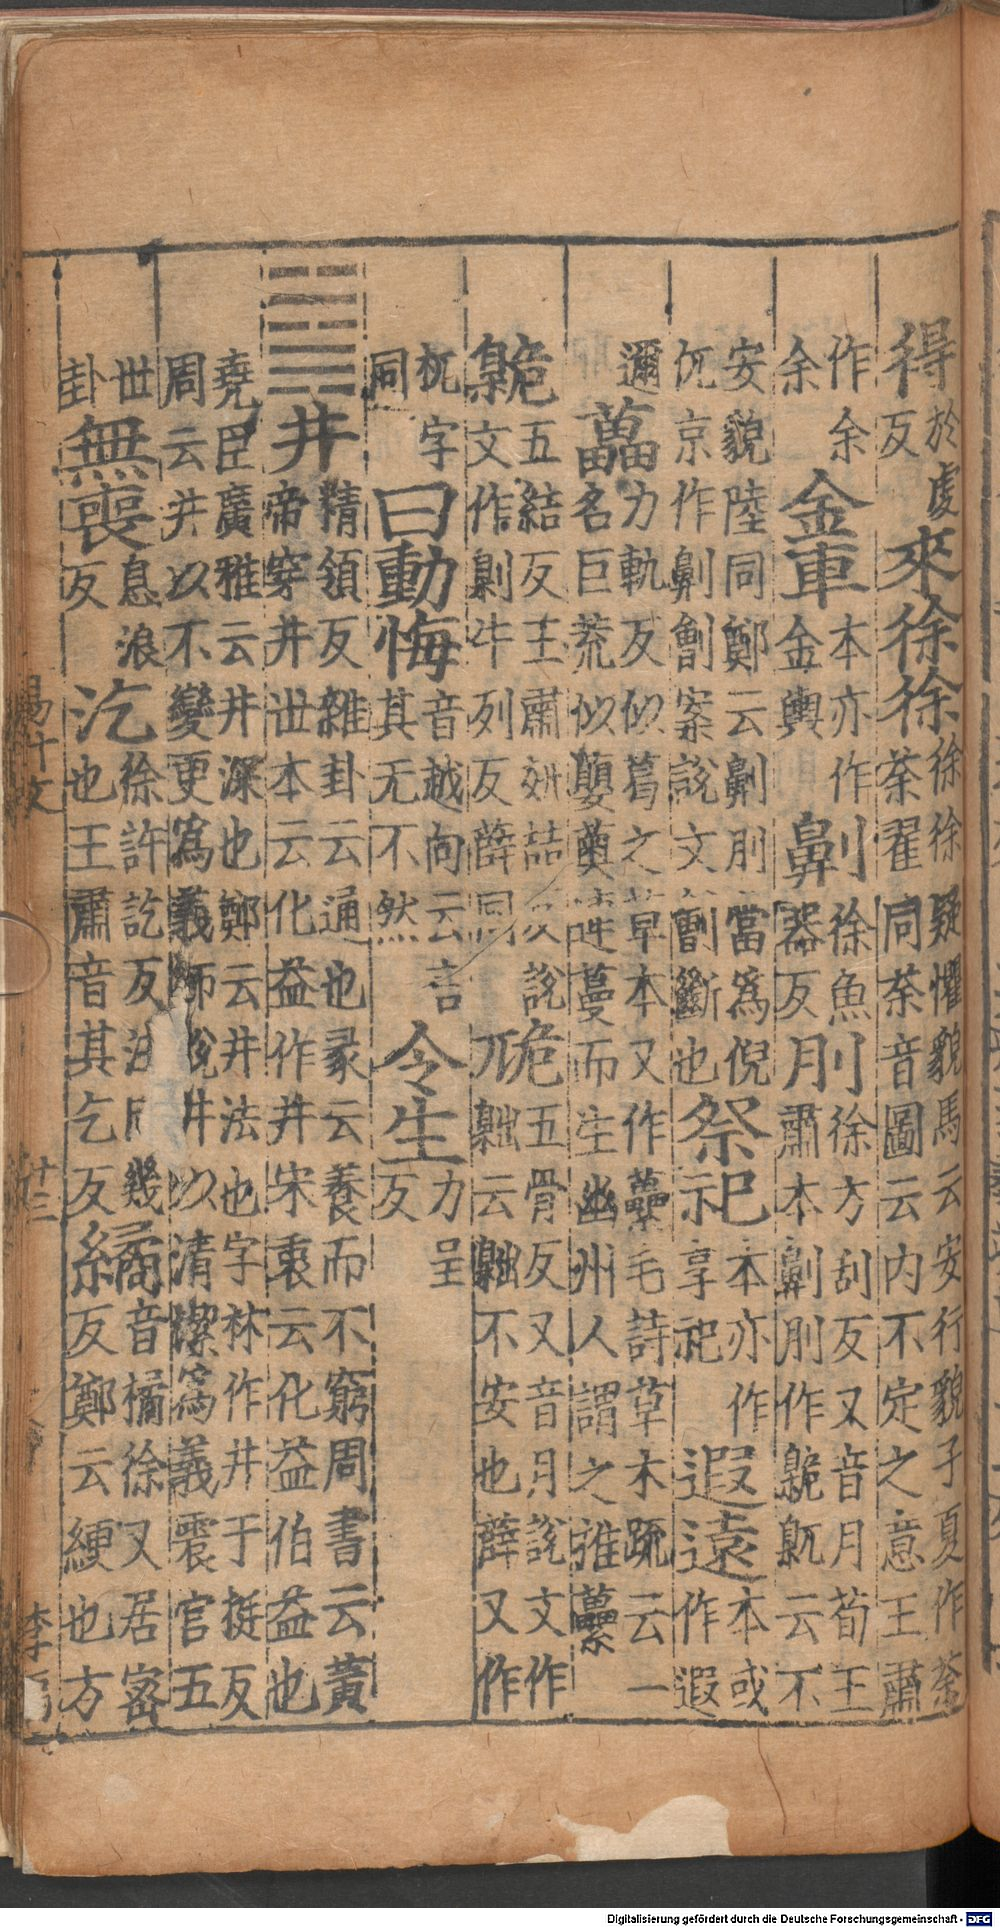 得於慮反來徐徐徐徐疑懼貌馬云安行貌子夏作荼荼翟同荼音圖云内不定之意王肅
作余余金車本亦作金輿劓徐魚器反刖徐方刮反又音月荀王肅本劓刖作臲卼云不
安貌陸同鄭云劓刖當爲倪㐳京作劓劊案說文劊斷也祭祀本亦作享祀遐遠本或作遐
邇藟力軌反似葛之草本又作虆毛詩草木疏云一名巨荒似蘡薁連蔓而生幽州人謂之蓷虆
臲五結反王肅妍喆反說文作劓牛列反薛同卼五骨反又音月說文作𡰈云𡰈不安也薛又作
杌字同曰動悔音越向云言其无不然令生力呈反
䷯井精領反雜卦云通也彖云養而不窮周書云黃帝穿井世本云化益作井宋衷云化益伯益也
堯臣廣雅云井深也鄭云井法也字林作井于挺反周云井以不變更爲義師說井以清潔爲義震宫五
世卦無喪息浪反汔徐許訖反注同幾也王肅音其乞反繘音橘徐又居密反鄭云綆也方
易十文
十三
李
Digitalisierung gefördert durch die Deutsche Forschungsgemeinschaft - DFG